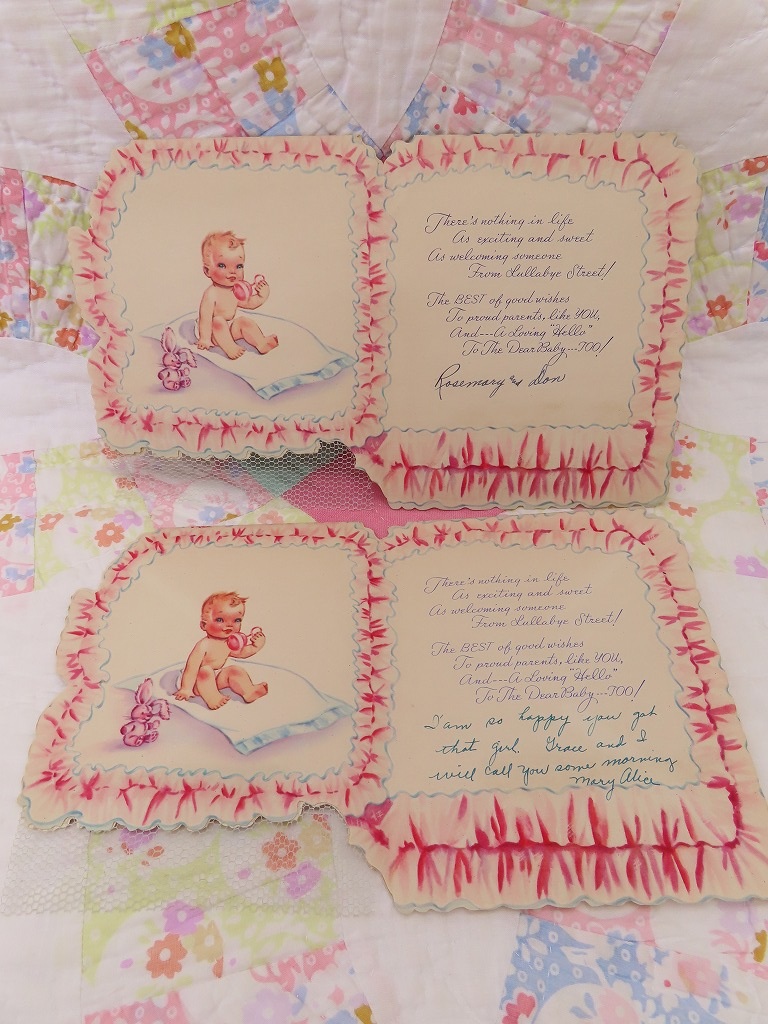 There's nothing in life
As exciting and sweet
As welcoming someone
From Lullabye Street!
The BEST of good wishes
To proud parents, like YOU,
And---A Loving "Hello"
To The Dear Baby---TOO!
Rosemary and Don
There's nothing in life
As exciting and sweet
As welcoming someone
From Lullabye Street!
The BEST of good wishes
To proud parents, like YOU,
And---A Loving "Hello"
To The Dear Baby---TOO!
I'am so happy you got
that girl. Grace and I
will call you some morning
Mary Alice